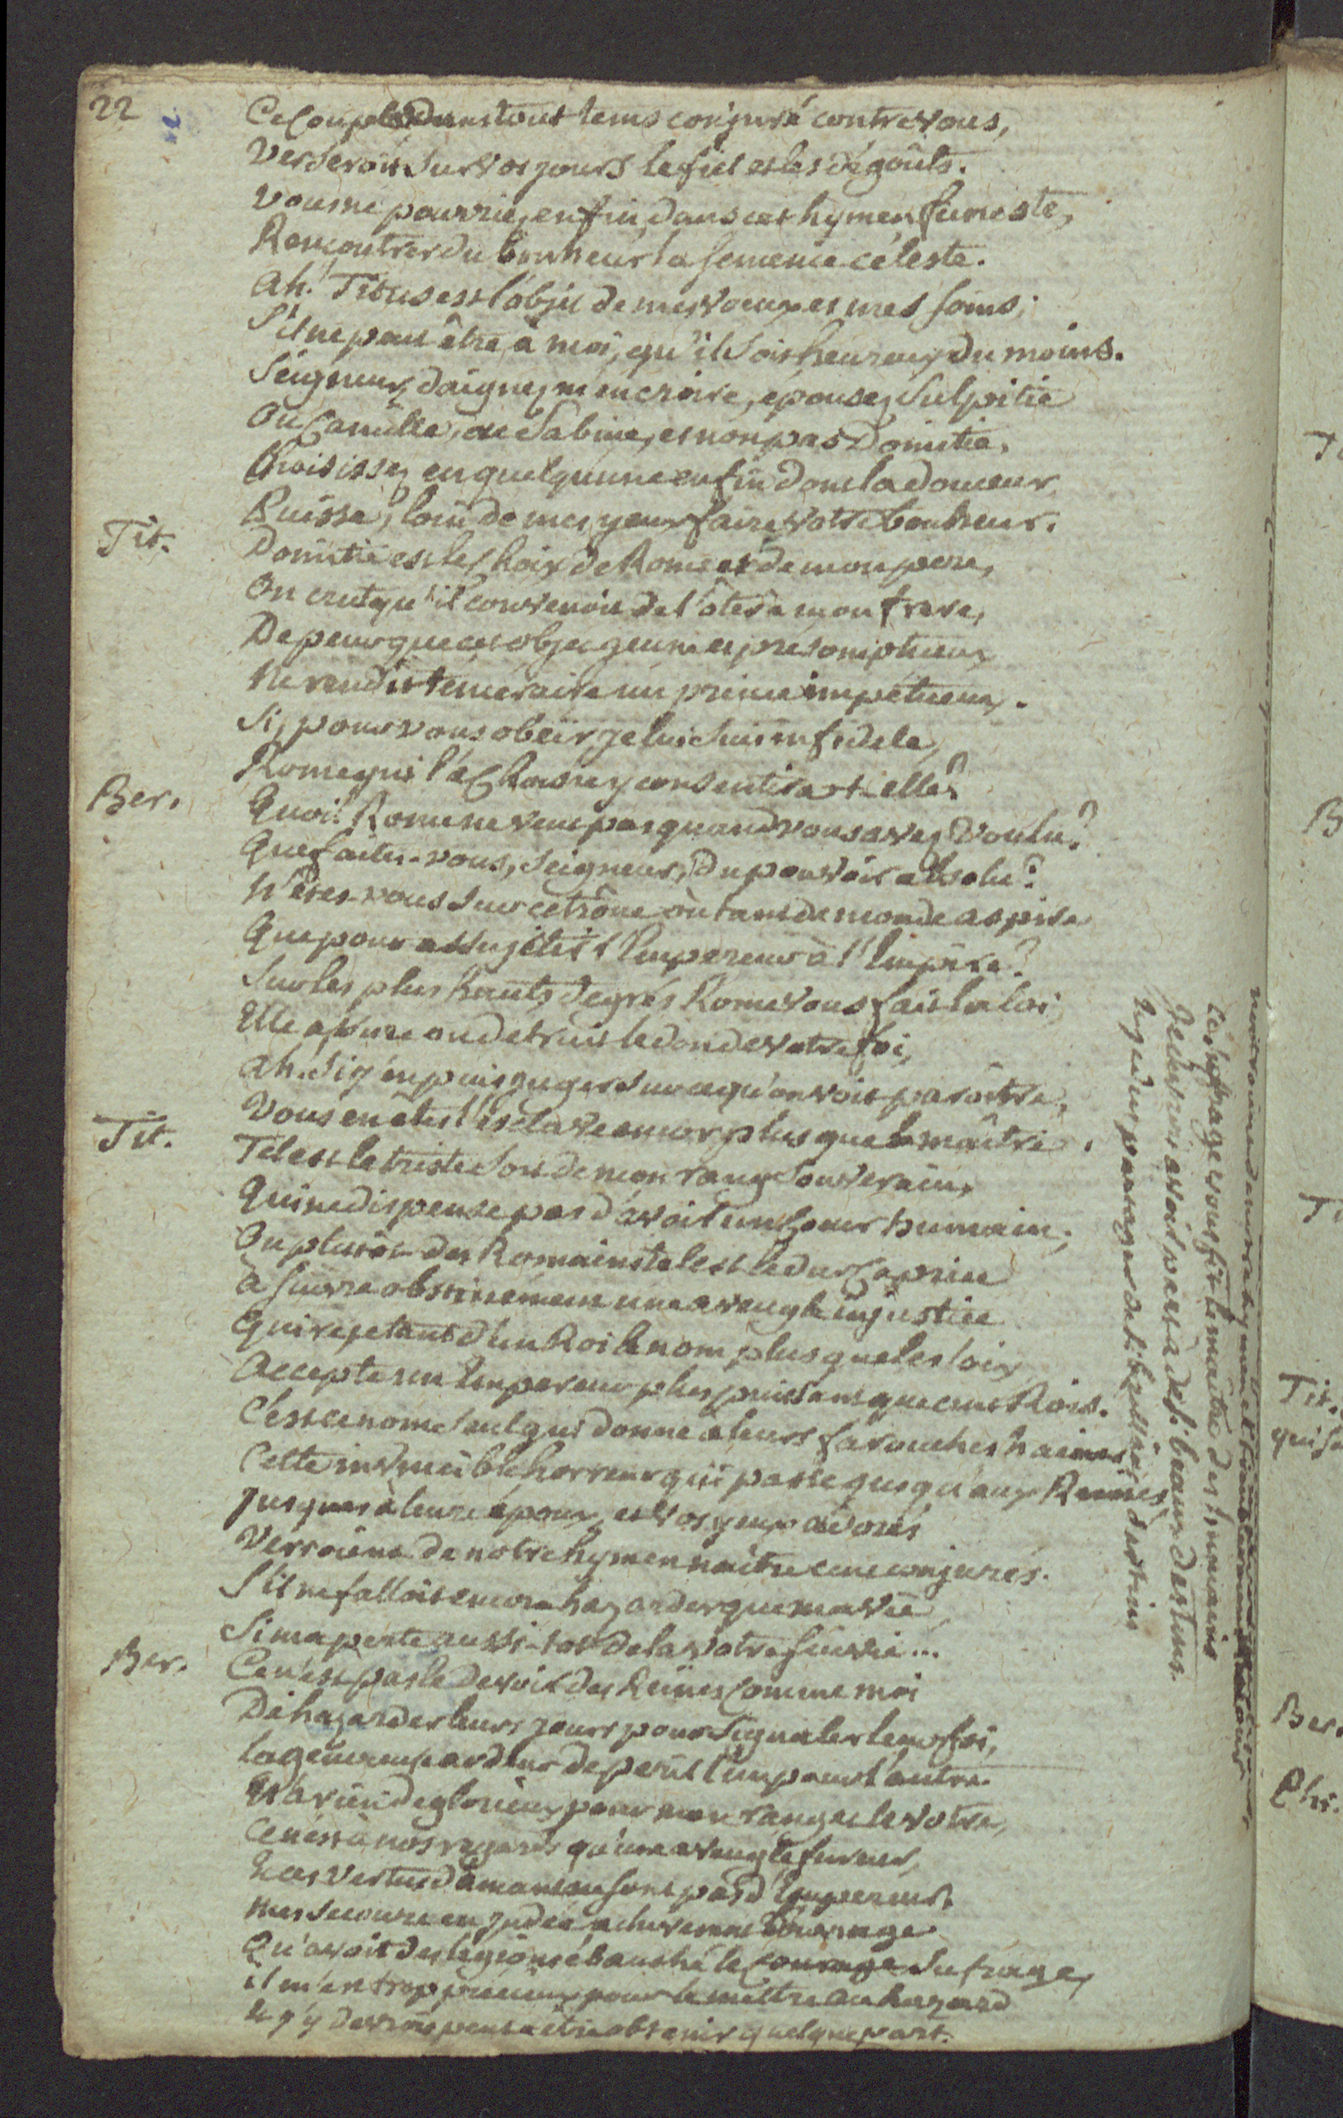 22
Ce Couple dans tout tems conjuré contre vous,
Verseroit sur vos jours le fiel et les dégoûts.
Vous ne pourriez enfin, dans cet hymen funeste,
Rencontrer du bonheur la semence céleste.
Ah! Titus est l'objet de mes voeux et mes soins;
S'il ne peut être à moi, qu'il soit heureux du moins.
Seigneur, daignez m'en croire, épousez Sulpitie
Ou Camille, ou Sabine, et non pas Domitie.
Choisissez en quelqu'une enfin dont la douceur
Puisse, loin de mes yeux faire votre bonheur.
Tit. Domitie est le Choix de Rome et de mon pere,
On crut qu'il convenoit de l'ôter à mon frere,
De peur que cet objet jeune et présomptueux
Ne rendit téméraire un prince impétueux.
Si, pour vous obéir je lui suis infidele,
Rome qui l'a Choisie y consentira-t-elle?
Ber. Quoi! Rome ne veut pas quand vous avez voulu?
Que faites-vous, Seigneur, du pouvoir absolu?
N'êtes-vous sur ce trône où tant de monde aspire
Que pour assujétir l'Empereur à l'Empire?
Sur les plus hauts degrés Rome vous fait la loi;
Elle assure ou detruit le don de votre foi,
Ah! Si j'en puis juger sur ce qu'on voit paroître,
Vous en êtes l'esclave encor plus que le maître.
Tit. Tel est le triste sort de mon rang souverain,
Qui ne dispense pas d'avoir un Coeur humain;
Ou plutôt des Romains tel est le dur Caprice
à suivre obstinément une aveugle injustice
Qui rejetant d'un Roi le nom plus que les loix
Accepte un Empereur plus puissant que cent Rois.
C'est ce nom seul qui donne à leurs farouches haines
Cette invincible horreur qui passe jusqu'aux Reines,
Jusques à leurs époux, et vos yeux adorés
Verroient de notre hymen naître cent conjurés.
S'il ne falloit encor hazarder que ma vie
Si ma perte aussi-tôt de la votre suivie...
Ber. Ce n'est pas le devoir des Reines Comme moi
De hazarder leurs jours pour signaler leur foi,
La généreuse ardeur de périr l'un pour l'autre
N'a rien de glorieux pour mon rang et le votre,
Ce n'est à nos regards qu'une aveugle fureur
Les vertus d'amant ne sont pas d'Empereur.
Mes secours en Judée acheverent l'ouvrage
Qu'avoit des légions ébauché le suffrage,
il m'est trop précieux pour le mettre au hazard
Et j'y devrois peut-être obtenir quelque part.
Ce suffrage vous fit le maître des humains
Je devrois avoir part à de si beaux destins.